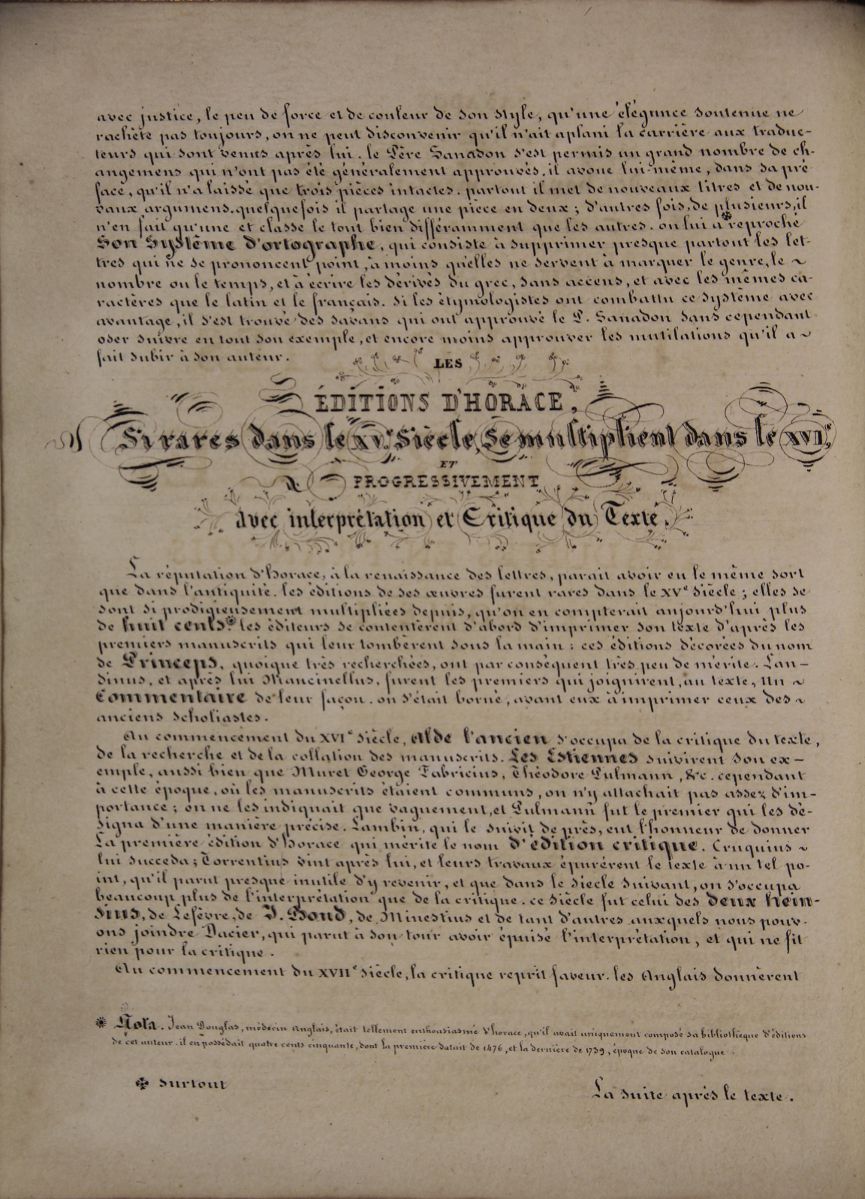 avec justice, le peu de force et de couleur de son style, qu'une élégance soutenue ne
rachète pas toujours, on ne peut disconvenir qu'il n'ait aplani la carrière aux traduc-
teurs qui sont venus après lui. le Père Sanadon s'est permis un grand nombre de ch-
angemens qui n'ont pas été généralement approuvés, il avoue lui-même, dans sa pré
face, qu'il n'a laissé que trois pièces intactes. partout il met de nouveaux titres et de nou-
vaux argumens. quelquefois il partage une pièce en deux; d'autres fois, de plusieurs, il
n'en fait qu'une et classe le tout bien différamment que les autres. on lui a ✤ reproché
Son Système d'ortographe, qui consiste à supprimer presque partout les let-
tres qui ne se prononcent point, à moins qu'elles ne servent à marquer le genre, le ~
nombre ou le temps, et à ecrire les dérivés du grec, sans accens, et avec les mêmes ca-
ractères que le latin et le français. Si les étymologistes ont combattu ce système avec
avantage, il s'est trouvé des savans qui ont approuvé le P. Sanadon sans cependant
oser suivre en tout son exemple, et encore moins approuver les mutilations qu'il a ~
fait subir à son auteur.
LES
ÉDITIONS D'HORACE,
Si rares dans le XV.e Siècle, Se multiplient dans le XVI.e
ET
PROGRESSIVEMENT
avec interprétation et Critique du Texte.
La réputation d'horace, à la renaissance des lettres, parait avoir eu le même sort
que dans l'antiquité. les éditions de ses œuvres furent rares dans le XVe siècle; elles se
sont si prodigieusement multipliées depuis, qu'on en compterait aujourd'hui plus
de huit cents* les éditeurs se contentèrent d'abord d'imprimer son texte d'après les
premiers manuscrits qui leur tombèrent sous la main: ces éditions décorées du nom
de Princeps, quoique très recherchées, ont par conséquent très peu de mérite. Lan-
dinus, et après lui Mancinellus, furent les premiers qui joignirent, au texte, un ~
Commentaire de leur façon. on s'était borné, avant eux à imprimer ceux des ~
anciens scholiastes.
Au commencement du XVIe siècle, Alde l'ancien s'occupa de la critique du texte,
de la recherche et de la collation des manuscrits. Les Estiennes suivirent son ex-
emple, aussi bien que Muret George Fabricius, Théodore Pulmann, &c. cependant
à cette époque, où les manuscrits étaient communs, on n'y attachait pas assez d'im-
portance; on ne les indiquait que vaguement, et Pulmann fut le premier qui les dé-
signa d'une manière précise. Lambin, qui le suivit de près, eut l'honneur de donner
La première édition d'horace qui mérite le nom d'édition critique. Cruquius ~
lui succeda; Torrentius vint après lui, et leurs travaux épurèrent le texte à un tel po-
int, qu'il parut presque inutile d'y revenir, et que dans le siecle suivant, on s'occupa
beaucoup plus de l'interprétation que de la critique. ce siècle fut celui des deux hein-
sius, de Lefèvre, de J. Bond, de Minestius et de tant d'autres auxquels nous pouv-
ons joindre Dacier, qui parut à son tour avoir épuisé l'interprétation, et qui ne fit
rien pour la critique.
Au commencement du XVIIe siècle, la critique reprit faveur. les Anglais donnèrent
* Nota. Jean Douglas, médecin Anglais, était tellement enthousiasmé d'horace, qu'il avait uniquement composé sa bibliotheque d'éditions
de cet auteur. il en possédait quatre cents cinquante, dont la première datait de 1476, et la dernière de 1739, époque de son catalogue.
✤ surtout
La suite après le texte.